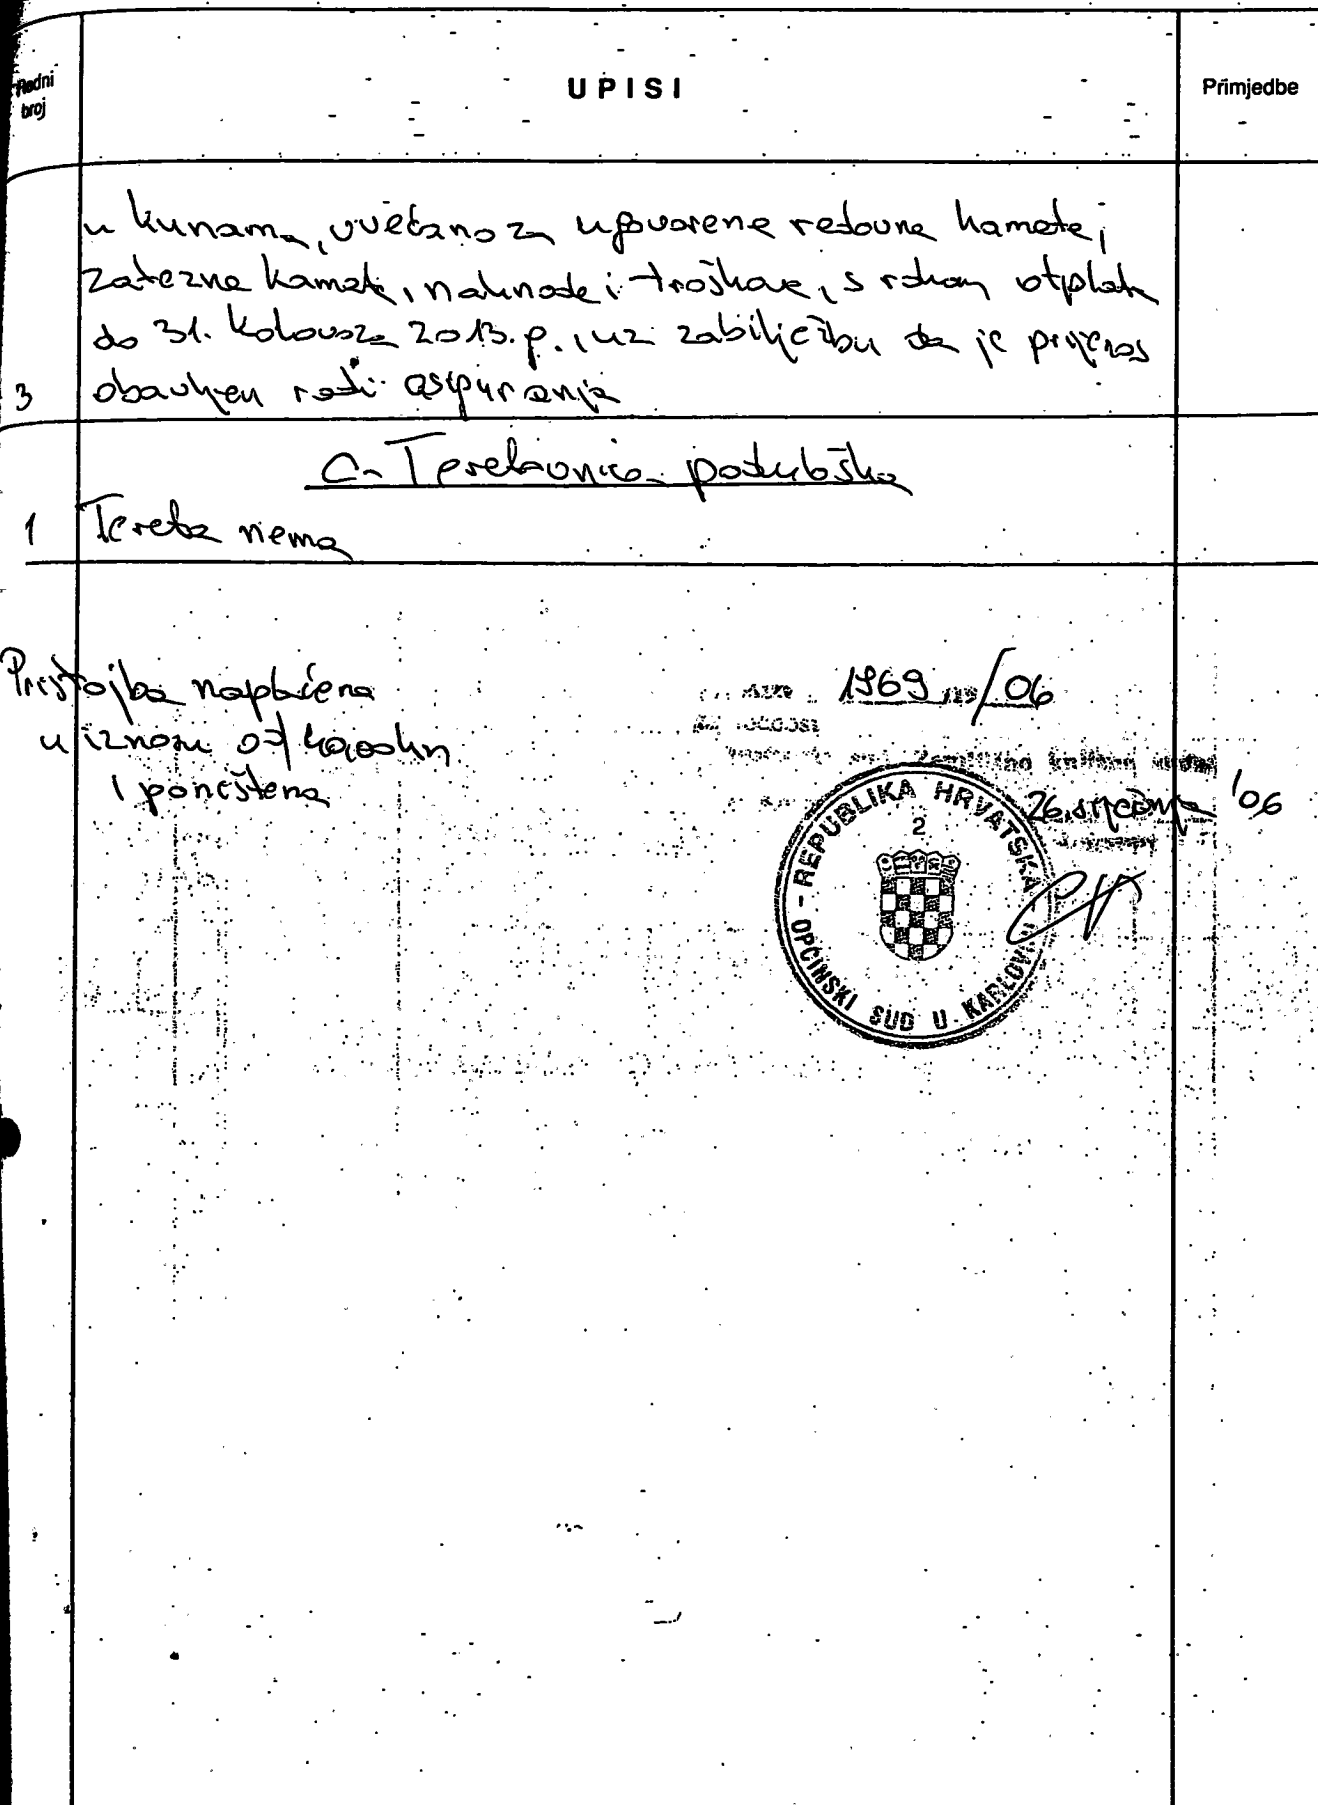 Redni
broj
UPISI
Primjedbe
u kunama, uvećano za ugovorene redovne kamate,
zatezne kamate, naknade i troškove, s rokom otplate
do 31. kolovoza 2013. g., uz zabilježbu da je prijenos
3 obavljen radi osiguranja
C- Teretovnica poduloška
1 Tereta nema
Pristojba naplaćena
u iznosu od
i poništena
1969 /06
Zemljišno knjižni
26. siječnja '06
REPUBLIKA HRVATSKA
2
OPĆINSKI SUD U KARLOVCU